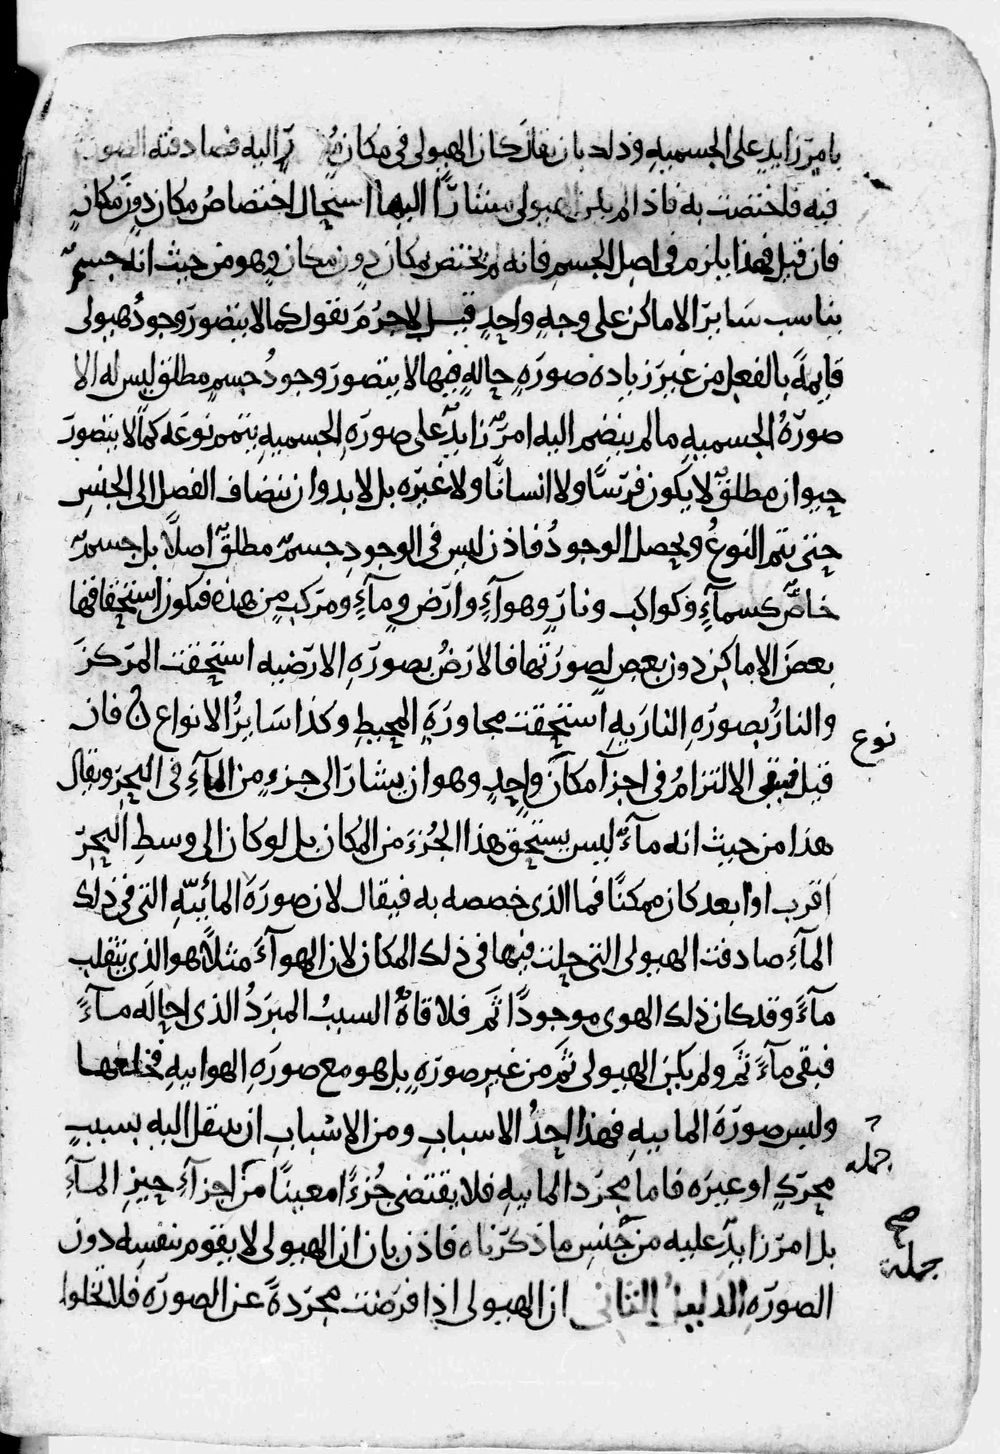 بامر زايد على الجسميه وذلك بان يقال كان الهيولى فى مكان اليه فصادفته الصورة
فيه فاختصت به فاذا لم يكن الهيولى مشارًا اليها استحال اختصاصُ مكان دون مكانٍ
فان قيل فهذا يلزم فى اصل الجسم فانه لم يختص بمكان دون مكانٍ وهو من حيث انه جسمٌ
يناسب سَاير الاماكن على وجهٍ واحدٍ قيل لاجرَمَ نقول كما لا يتصورَ وجودُ هيولى
قايمةً بالفعل من غير زيادة صورَةٍ حالةٍ فيها لا يتصورَ وجودُ جسمٍ مطلق ليس له الا
صورَةُ الجسميه ما لم ينضم اليه امرٌ زايدٌ على صورَةِ الجسميهِ يتمم نوعَه كما لا يتصورَ
حيوان مطلقٌ لا يكون فرَسًا ولا انسانًا ولا غيرَه بل لا بد وان ينضاف الفصل الى الجنسِ
حتى يتم النوعُ ويحصل الوجودُ فاذن ليس فى الوجودِ جسمٌ مطلقٌ اصلًا بل جسمٌ
خاصٌ كسمآءٍ وكواكب ونارٍ وهوآءٍ وارَضٍ ومآءٍ ومرَكبٍ من هذه فيكون استحقاقها
بعضَ الاماكن دون بعضٍ لصورَتها فالارَضُ بصورَةِ الارَضيه استحقت المرَكزَ
والنارُ بصورَةِ الناريهِ استحقت مجاورَةَ المحيطِ وكذا سَايرُ الانواع ن فان
نوع
قيل فيبقى الالتزامُ فى اجزآ مكانٍ واحدٍ وهو ان يشارَ الى جزءٍ من المآءِ فى البحرِ ويقال
هذا من حيث انه مآءٌ ليس يستحق هذا الجُزءَ من المكان بل لو كان الى وسطِ البحرِ
اقرب او ابعد كان ممكنًا فما الذى خصصه به فيقال لان صورَةَ المائيّهِ التى فى ذلك
المآءِ صادفت الهيولى التى حلت فيها فى ذلك المكان لان الهوآءَ مثلًا هو الذى ينقلب
مآءً وقد كان ذلك الهوى موجودًا ثَم فلاقاهُ السببُ المبرَدُ الذى احالَه مآءً
فبقى مآءً ثَم ولم يكن الهيولى ثَم من غير صورَةٍ بل هو مع صورَةِ الهوايهِ فخلعها
ولبس صورَةَ المايهِ فهذا احدُ الاسبابِ ومن الاسْبابِ ان ينتقل اليه بسببٍ
جمله
محرّكٍ او غيرَه فاما مجرّد المايهِ فلا يقتضى جُزءًا معينًا من اجزآءِ حيز المآءِ
بل امرَ زايدٌ عليه من جنس ما ذكرَناه فاذن بان ان الهيولى لا يقوم بنفسِه دون
صح
جملة
الصورَةِ الدليلُ الثانى ان الهيولى اذا فرَضت مجرّدةً عن الصورَه فلا تخلوا